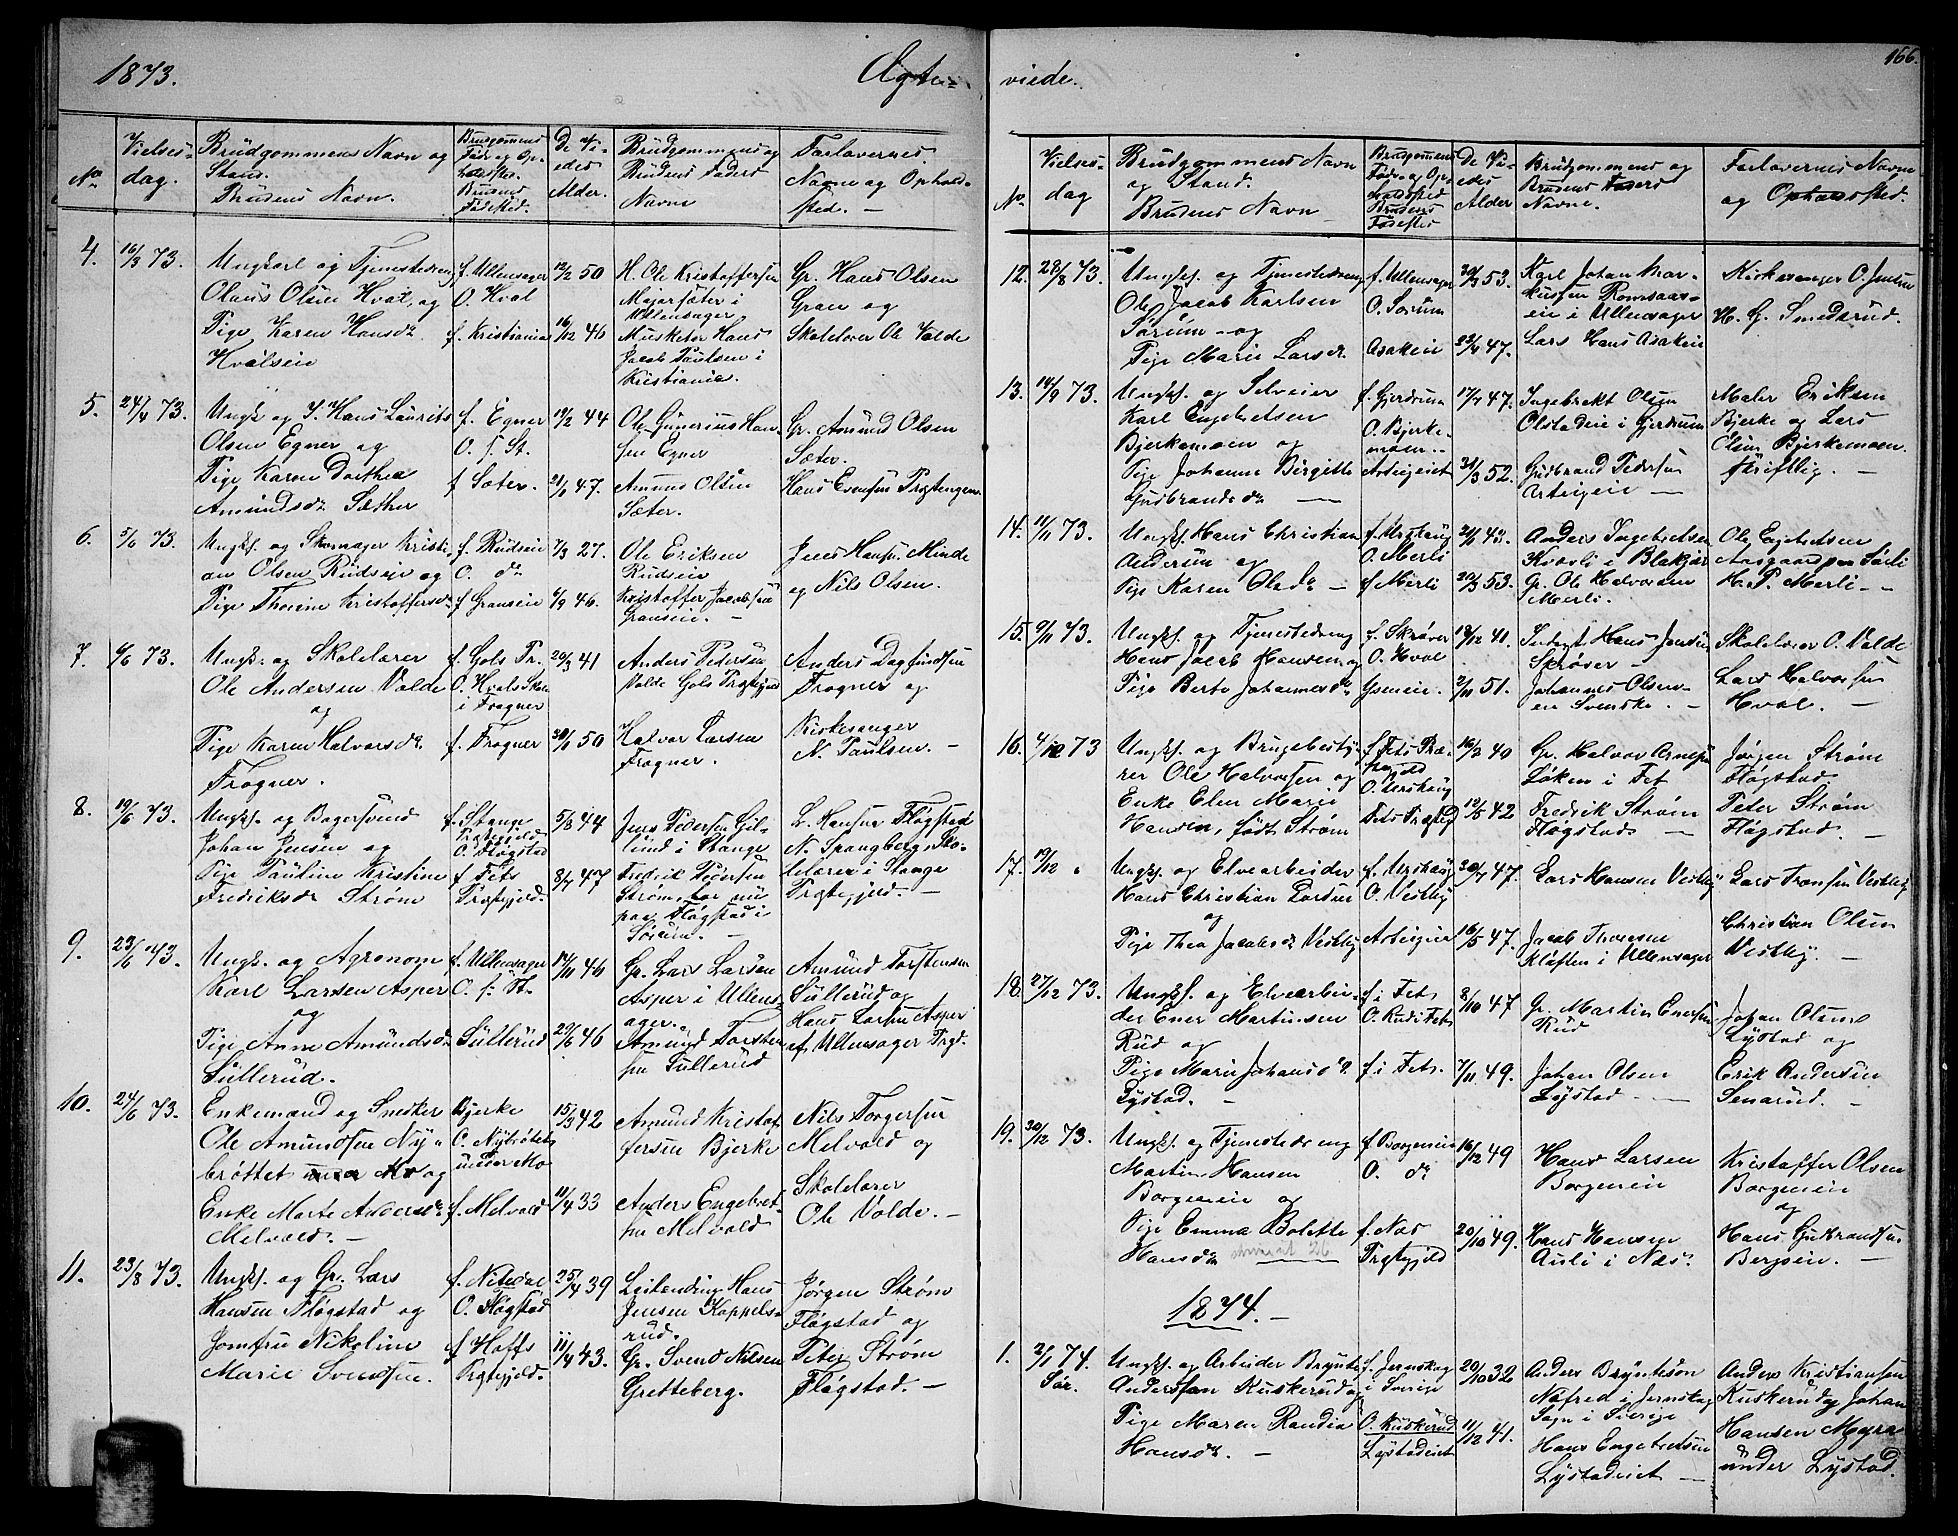 1873.
Ægte-
viede.
166.
No
Vielses-
dag.
Brudgommens Navn og
Stand.
Brudens Navn.
Brudgommens
Føde og Op-
holdssted.
Brudens
Fødested.
De Vi-
edes
Alder.
Brudgommens og
Brudens Faders
Navne
Forlovernes
Navn og Ophold-
sted. —
4.
16/3 73.
Ungkarl og Tjenestedreng
Olaus Olsen Hval, og
Pige Karen Hansdr
Hvalseie
f. Ullensager
O. Hval
f. Kristiania
12/2 50
16/12 46
H. Ole Kristoffersen
Mejersæter i
Ullensager
Musketer Hans
Jacob Paulsen i
Kristiania.
Gr. Hans Olsen
Gran og
Skolelærer Ole Valde
5.
24/4 73.
Ungk. og S. Hans Laurits
Olsen Egner og
Pige Karen Dorthea
Amundsdr Sæther
f. Egner
O. s. St.
f Sæter.
19/2 44
21/1 47.
Ole Gunerius Han-
sen Egner
Amund Olsen
Sæter.
Gr. Amund Olsen
Sæter.
Hans Evensen Prgtengen
6.
5/6 73.
Ungk. og Skomager Kristi-
an Olsen Rudseie og
Pige Thorine Kristoffersdr
f. Rudseie
O. do
f Granseie
7/3 27.
6/9 46.
Ole Eriksen
Rudseie
Kristoffer Jacobsen
Granseie. —
Jens Hansen Minde
og Nils Olsen.
7.
6/6 73.
Ungk. og Skolelærer
Ole Andersen Valde
og
Pige Karen Halvorsdr
Frogner.
f. Gols Pr.
O. Hvals Skole
i Frogner
f. Frogner
20/3 41
30/1 50
Anders Pedersen
Valde Gols Prstgjeld
Halvor Larsen
Frogner.
Anders Dagfindsen
Frogner og
Kirkesanger
N. Paulsen. —
8.
19/6 73.
Ungk. og Bagersvend
Johan Jensen og
Pige Pauline Kristine
Fredriksdr Strøm
f. Stange
Prstegjeld
O. Fløgstad
f Fets
Prstegjeld.
5/8 44
8/7 47
Jens Pedersen Gil-
lund i Stange
Fredrik Pedersen
Strøm, bor nu
paa Fløgstad i
Sørum. —
L. Hansen Fløgstad
N. Spangberg, Sko-
lelærer i Stange
Prstegjeld. —
9.
23/6 73.
Ungk. og Agronom
Karl Larsen Asper
og
Pige Anne Amundsdr
Sullerud.
f. Ullensager
O. s. St.
Sullerud
14/11 46
29/6 46
Gr. Lars Larsen
Asper i Ullens-
ager.
Amund Torsten-
sen Sullerud
Amund Torstensen
Sullerud og
Hans Larsen Asper
af Ullensager Prgd.
10.
24/6 73.
Enkemand og Snekker
Ole Amundsen Ny-
brøttet under Mo og
Enke Marte Andersdr
Melvold. —
Bjerke
O. Nybrøtet
under Mo
f. Melvold
15/3 42
11/4 33
Amund Kristof-
fersen Bjerke
Anders Engebret-
sen Melvold
Nils Torgersen
Melvold og
Skolelærer
Ole Valde. —
11.
23/8 73.
Ungk. og Gr. Lars
Hansen Fløgstad og
Jomfru Nikoline
Marie Svendsen.
f. Nitedal
O. Fløgstad
f Hoffs
Prstegjeld.
25/4 39
11/4 43.
Leilending Hans
Jensen Kappels-
rud.
Gr. Svend Nilsen
Gretteberg.
Jørgen Strøm
Fløgstad og
Peter Strøm
Fløgstad. —
No.
Vielses
dag
Brudgommens Navn
og Stand.
Brudens Navn
Brudgommens
Føde- og Op-
holdssted
Brudens
Fødested
De Vi-
edes
Alder
Brudgommens og
Brudens Faders
Navne.
Forlovernes Navn
og Opholdssted.
12.
28/8 73.
Ungk. og Tjenestedreng
Ole Jacob Karlsen
Sørum og
Pige Marie Larsdr
f. Ullensager
O. Sørum
Asakeie
30/3 53.
23/4 47.
Karl Johan Mar-
kussen Romsaas-
eie i Ullensager
Lars Hans Asakeie
Kirkesanger O. Jensen
H. G. Smedsrud.
13.
14/9 73.
Ungk. og Selveier
Karl Engebretsen
Bjerkemoen og
Pige Johanne Birgitte
Gudbrandsdr
f. Gjerdrum
O. Bjerke-
moen.
Arteigeiet
17/7 47.
31/3 52.
Ingebrekt Olsen
Olstadeie i Gjerdrum
Gudbrand Pedersen
Arteigeie —
Maler Eriksen
Bjerke og Lars
Olsen Bjerkemoen
skriftlig. —
14.
11/11 73.
Ungk. Hans Christian
Andersen og
Pige Karen Olsdr —
f. Urskoug
O. Merli
f Merli
21/6 43.
20/3 53.
Anders Ingebretsen
Kvevli i Blakjær
Gr. Ole Halvorsen
Merli.
Ole Engebretsen
Aasgaard paa Sørli
H. P. Merli. —
15.
9/11 73.
Ungk. og Tjenestedreng
Hans Jacob Hansen og
Pige Berte Johannesdr
f. Skrøver
O. Hval
Ysneie.
19/12 41.
2/11 51.
Inderst Hans Jensen
Skrøver —
Johannes Olsen
en Svenske. —
Skolelærer O. Valde
Lars Halvorsen
Hval. —
16.
4/12 73
Ungk. og Brugsbesty-
rer Ole Halvorsen og
Enke Elen Marie
Hansen, født Strøm
f. Fets Præ-
stegjeld
O. Urskoug
Fets Prstgjd
16/2 40
12/5 42
Gr. Halvor Arnesen
Løken i Fet
Fredrik Strøm
Fløgstad —
Jørgen Strøm
Fløgstad.
Peter Strøm
Fløgstad. —
17.
19/12 "
Ungk. og Elvearbeider
Hans Christian Larsen
og
Pige Thea Jacobsdr Vestby
f. Urskoug
O. Vestby
Arteigeie
30/7 47.
16/5 47.
Lars Hansen Vestby
Jacob Thoresen
Kløften i Ullensager
Lars Fransen Vestby
Christian Olsen
Vestby. —
18.
27/12 73.
Ungk. og Elvearbei-
der Ener Martinsen
Rud og
Pige Marie Johansdr.
Lystad. —
f. i Fet
O. Rud i Fet
f. i Fet.
8/10 47
7/11 49.
Gr. Martin Enersen
Rud
Johan Olsen
Lystad —
Johan Olsen
Lystad og
Erik Andersen
Senerud. —
19.
30/12 73.
Ungk. og Tjenestedreng
Martin Hansen
Borgeneie og
Pige Emma Bolette
Hansdr
f. Borgeneie
O. do
f. Næs
Prstegjeld
16/12 49
20/10 49.
Hans Larsen
Borgeneie
Hans Hansen
Auli i Næs
Kristoffer Olsen
Borgeneie
og
Hans Gudbrandsen
Bergseie. —
1874. —
1.
2/1 74.
Sør.
Ungk. og Arbeider Brynte
Anderssøn Kuskerud og
Pige Maren Randia
Hansdr. —
f. Jernskog
i Sverige
O. Kuskerud
Lystadeiet
29/10 32
11/12 41.
Anders Bryntesøn
Nafred i Jernskog
Sogn i Sverige
Hans Engebretsen
Lystadeiet —
Anders Kristiansen
Kuskerud og Johan
Hansen Myra
under Lystad.